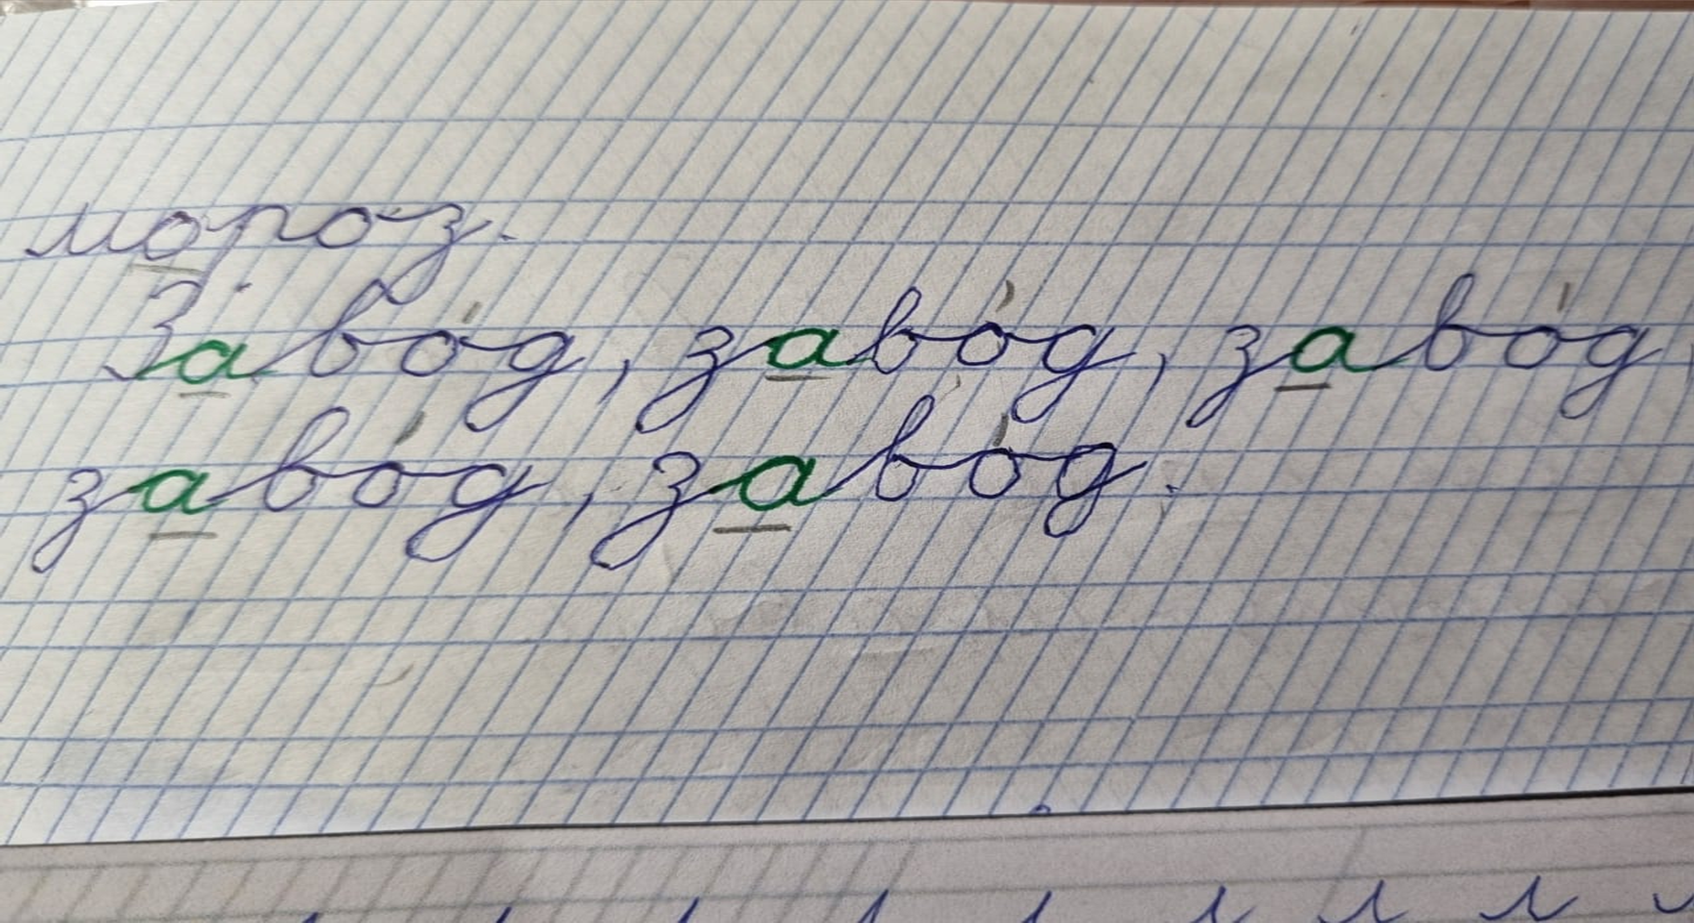 мороз.
Заво́д, заво́д, заво́д,
заво́д, заво́д.